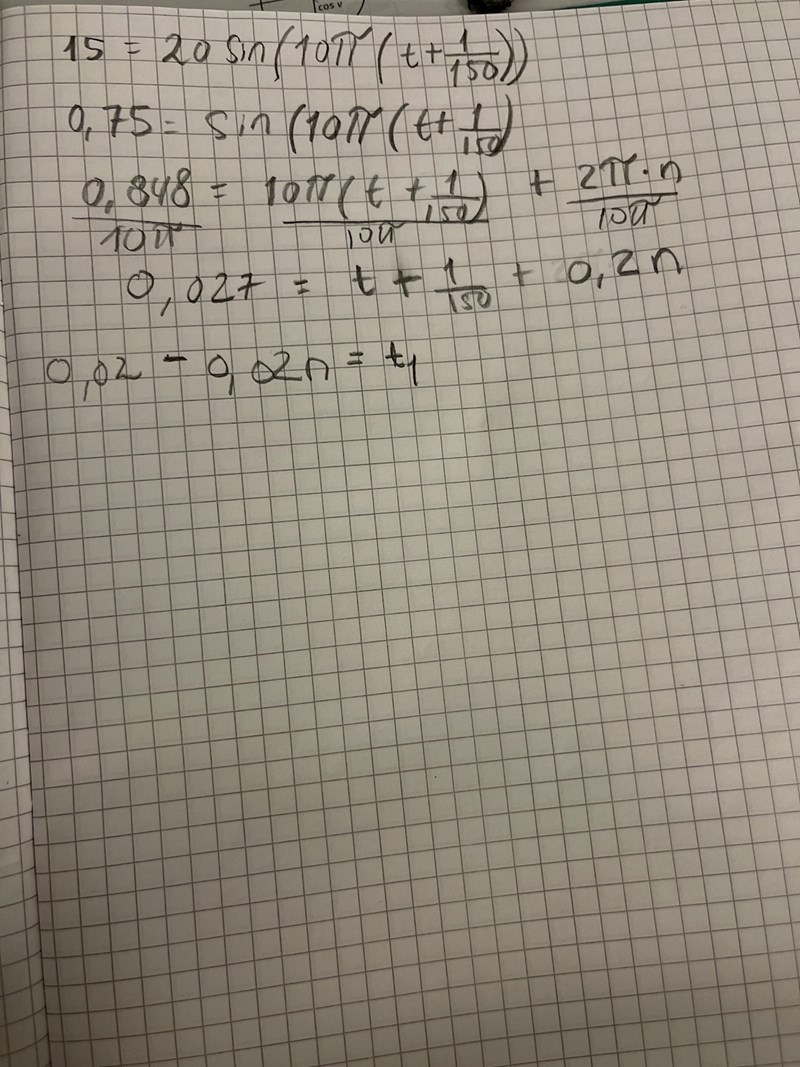 cos v
15 = 20 sin(10π(t+1/150))
0,75 = sin(10π(t+1/150)
0,848/10π = 10π(t+1/150)/10π + 2π·n/10π
0,027 = t + 1/150 + 0,2n
0,02 - 0,02n = t₁